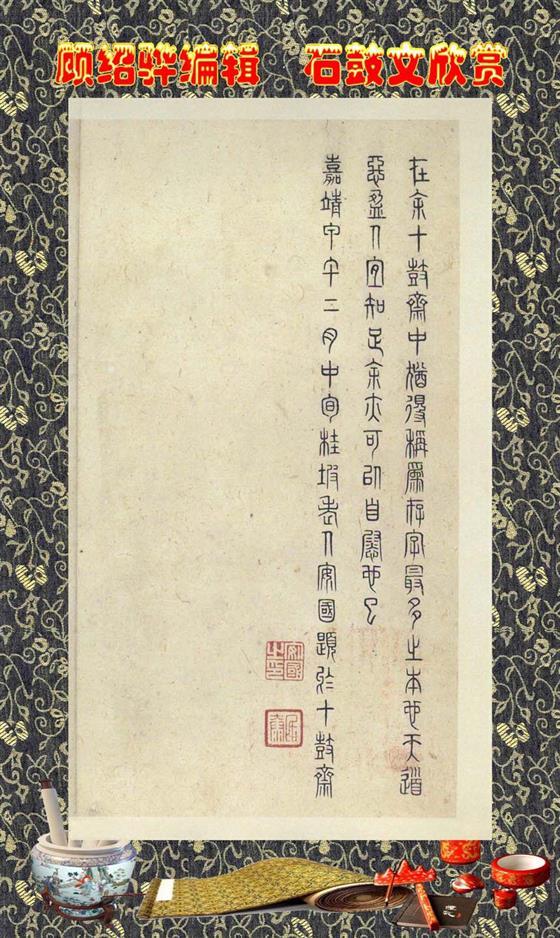 顾绍骅编辑 石鼓文欣赏
在余十鼓齋中猶得稱為存字最多之本也天道
惡盈人宜知足余亦可以自慰也已
嘉靖甲午二月中旬桂坡老人安國題於十鼓齋